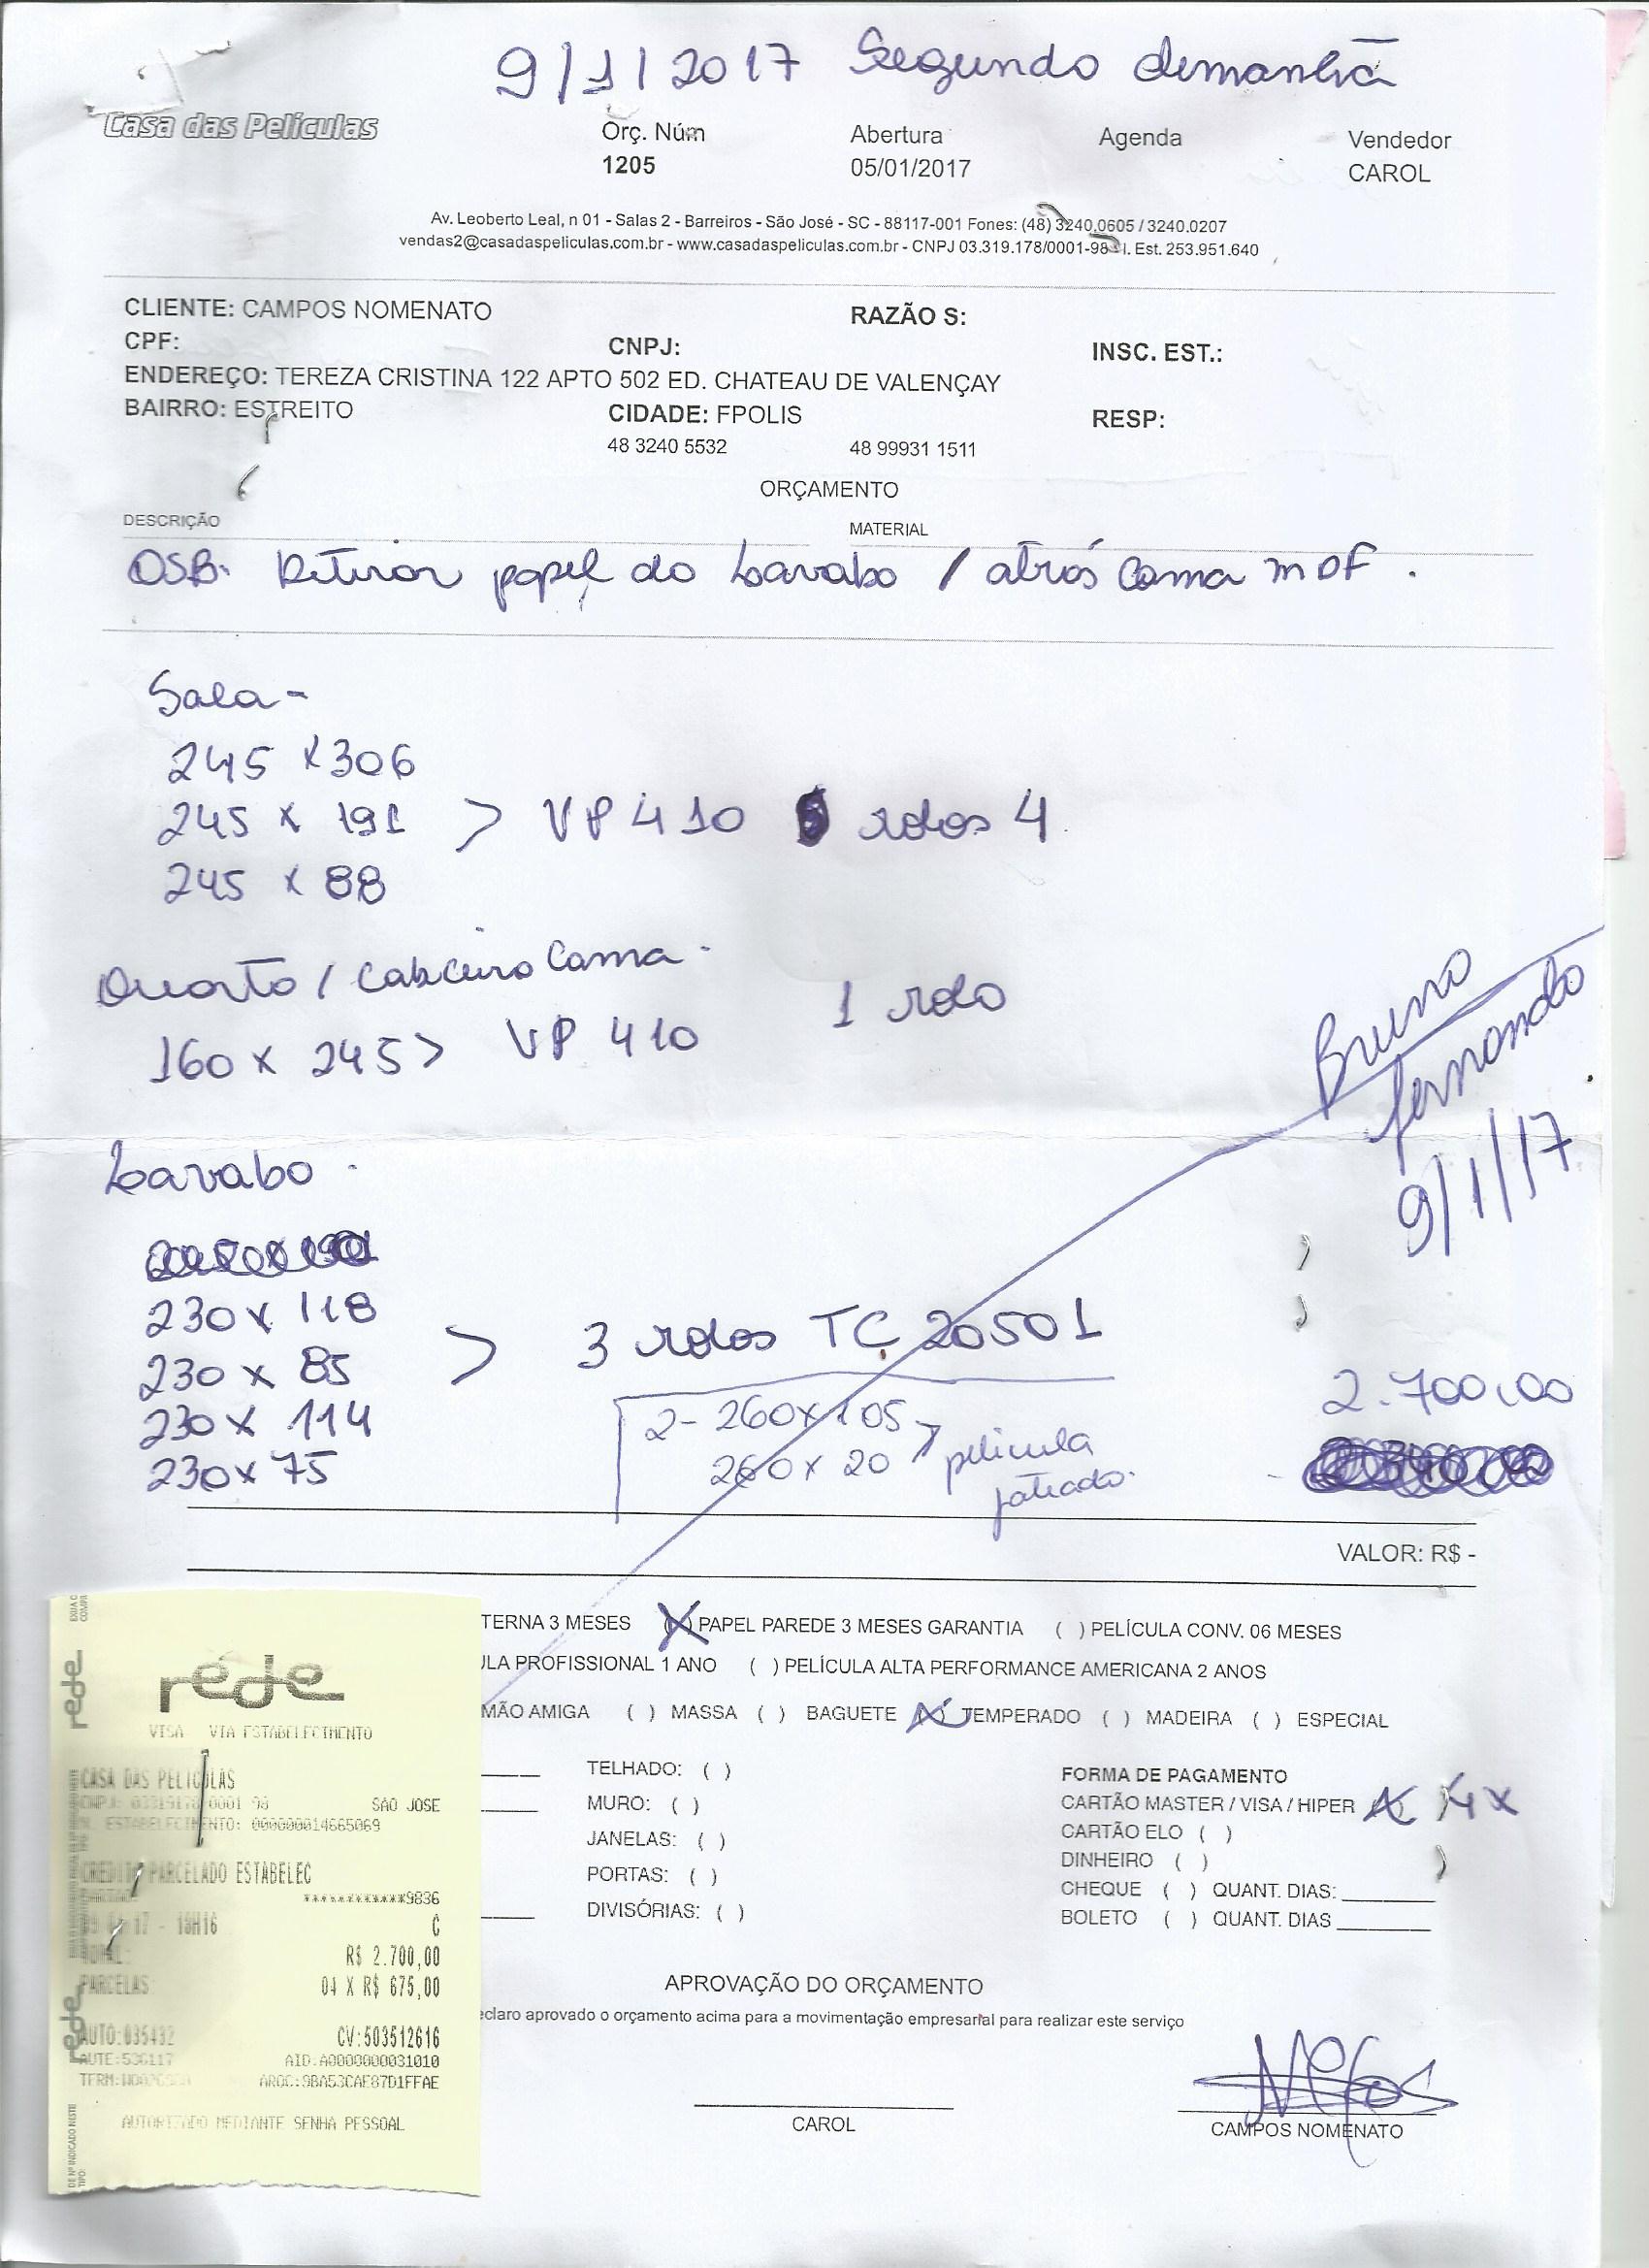 9/1/2017 Segundo demanhã
Casa das Películas
Orç. Núm Abertura Agenda Vendedor
1205 05/01/2017 CAROL
Av. Leoberto Leal, n 01 - Salas 2 - Barreiros - São José - SC - 88117-001 Fones: (48) 3240.0605 / 3240.0207
vendas2@casadaspeliculas.com.br - www.casadaspeliculas.com.br - CNPJ 03.319.178/0001-98 - I. Est. 253.951.640
CLIENTE: CAMPOS NOMENATO RAZÃO S:
CPF: CNPJ: INSC. EST.:
ENDEREÇO: TEREZA CRISTINA 122 APTO 502 ED. CHATEAU DE VALENÇAY
BAIRRO: ESTREITO CIDADE: FPOLIS RESP:
48 3240 5532 48 99931 1511
ORÇAMENTO
DESCRIÇÃO MATERIAL
OSB. Retirar papel do Lavabo / atrás Cama MDF.
Sala -
245 x 306
245 x 191 > VP 410 rolos 4
245 x 88
Quarto / Cabeceira Cama -
1 rolo
160 x 245 > VP 410
Bruno
fernando
9/1/17
Lavabo -
230 x 118
230 x 85 > 3 rolos TC 20501
230 x 114 2- 260 x 105 2.700,00
230 x 75 260 x 20 > pelicula
jateado.
VALOR: R$ -
TERNA 3 MESES (X) PAPEL PAREDE 3 MESES GARANTIA ( ) PELÍCULA CONV. 06 MESES
ULA PROFISSIONAL 1 ANO ( ) PELÍCULA ALTA PERFORMANCE AMERICANA 2 ANOS
MÃO AMIGA ( ) MASSA ( ) BAGUETE (X) TEMPERADO ( ) MADEIRA ( ) ESPECIAL
TELHADO: ( )
MURO: ( )
JANELAS: ( )
PORTAS: ( )
DIVISÓRIAS: ( )
FORMA DE PAGAMENTO
CARTÃO MASTER / VISA / HIPER (X) 4x
CARTÃO ELO ( )
DINHEIRO ( )
CHEQUE ( ) QUANT. DIAS:
BOLETO ( ) QUANT. DIAS
APROVAÇÃO DO ORÇAMENTO
eclaro aprovado o orçamento acima para a movimentação empresarial para realizar este serviço
CAROL
CAMPOS NOMENATO
rede
rede
VISA VIA ESTABELECIMENTO
CASA DAS PELICULAS
CNPJ: 03319178/0001 98 SAO JOSE
ESTABELECIMENTO: 000000014665069
CREDITO PARCELADO ESTABELEC
************9836
C
R$ 2.700,00
PARCELAS: 04 X R$ 675,00
AUTO:035432 CV:503512616
AUTE:536117 AID:A0000000031010
ARQC:9BA53CAE87D1FFAE
AUTORIZADO MEDIANTE SENHA PESSOAL
rede